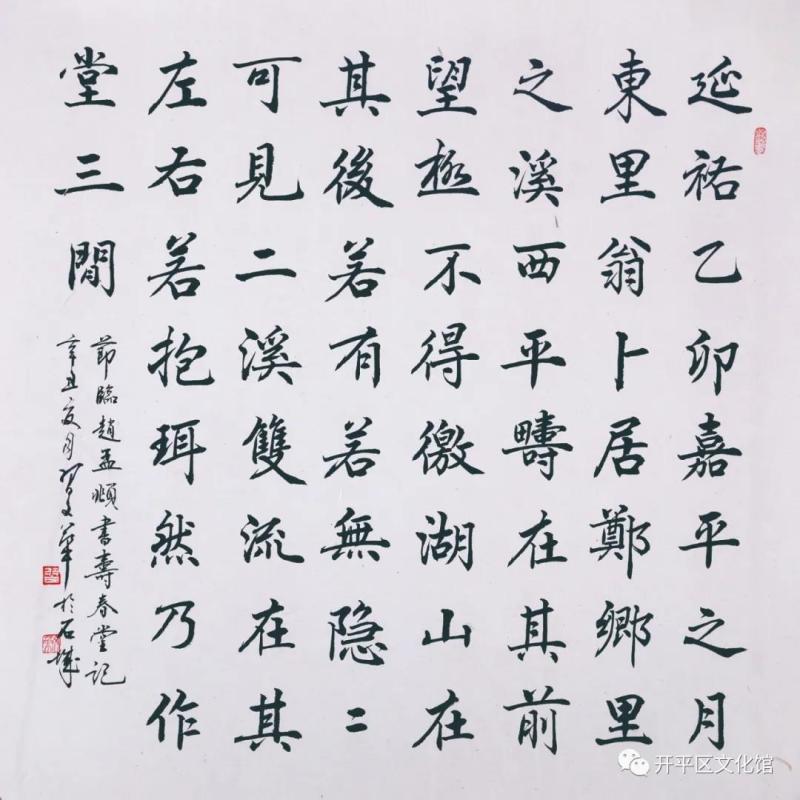 延祐乙卯嘉平之月
東里翁卜居鄭鄉里
之溪西平疇在其前
望極不得徼湖山在
其後若有若無隐〻
可見二溪雙流在其
左右若抱珥然乃作
堂三間
節臨趙孟頫書壽春堂記
辛丑夏月 於石城
开平区文化馆